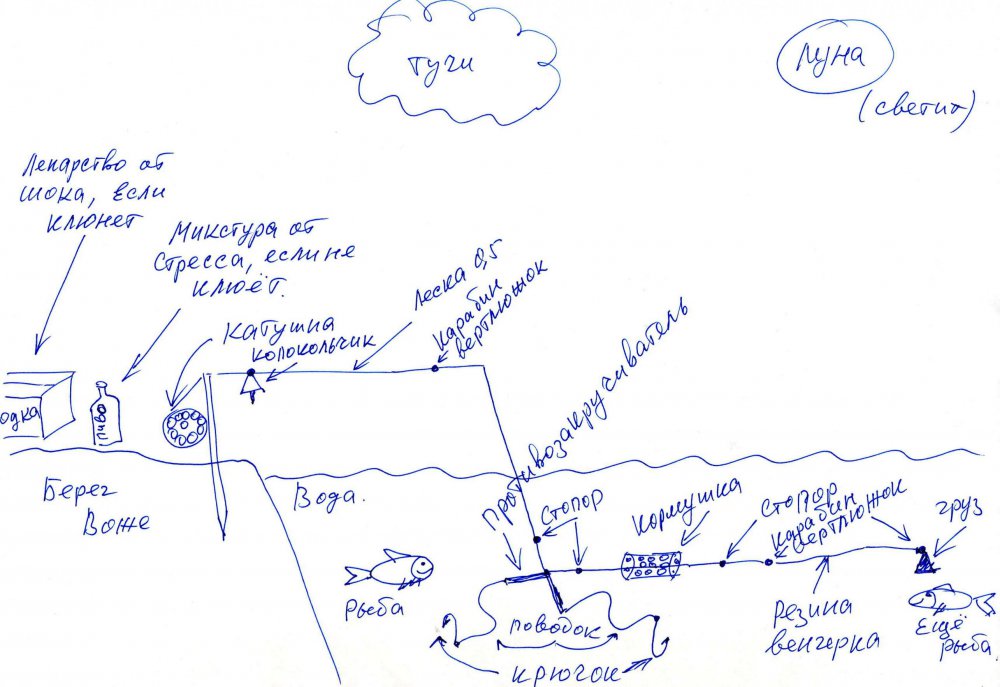 тучи
Луна
(светит)
Лекарство от
шока, если
клюнет
Микстура от
стресса, если не
клюёт.
катушка
колокольчик
леска 0,5
карабин
вертлюжок
противозакручиватель
одка
пиво
Берег
Воже
Вода.
стопор
кормушка
стопор
карабин
вертлюжок
груз
Рыба
поводок
крючок
Резина
венгерка
Ещё
рыба.